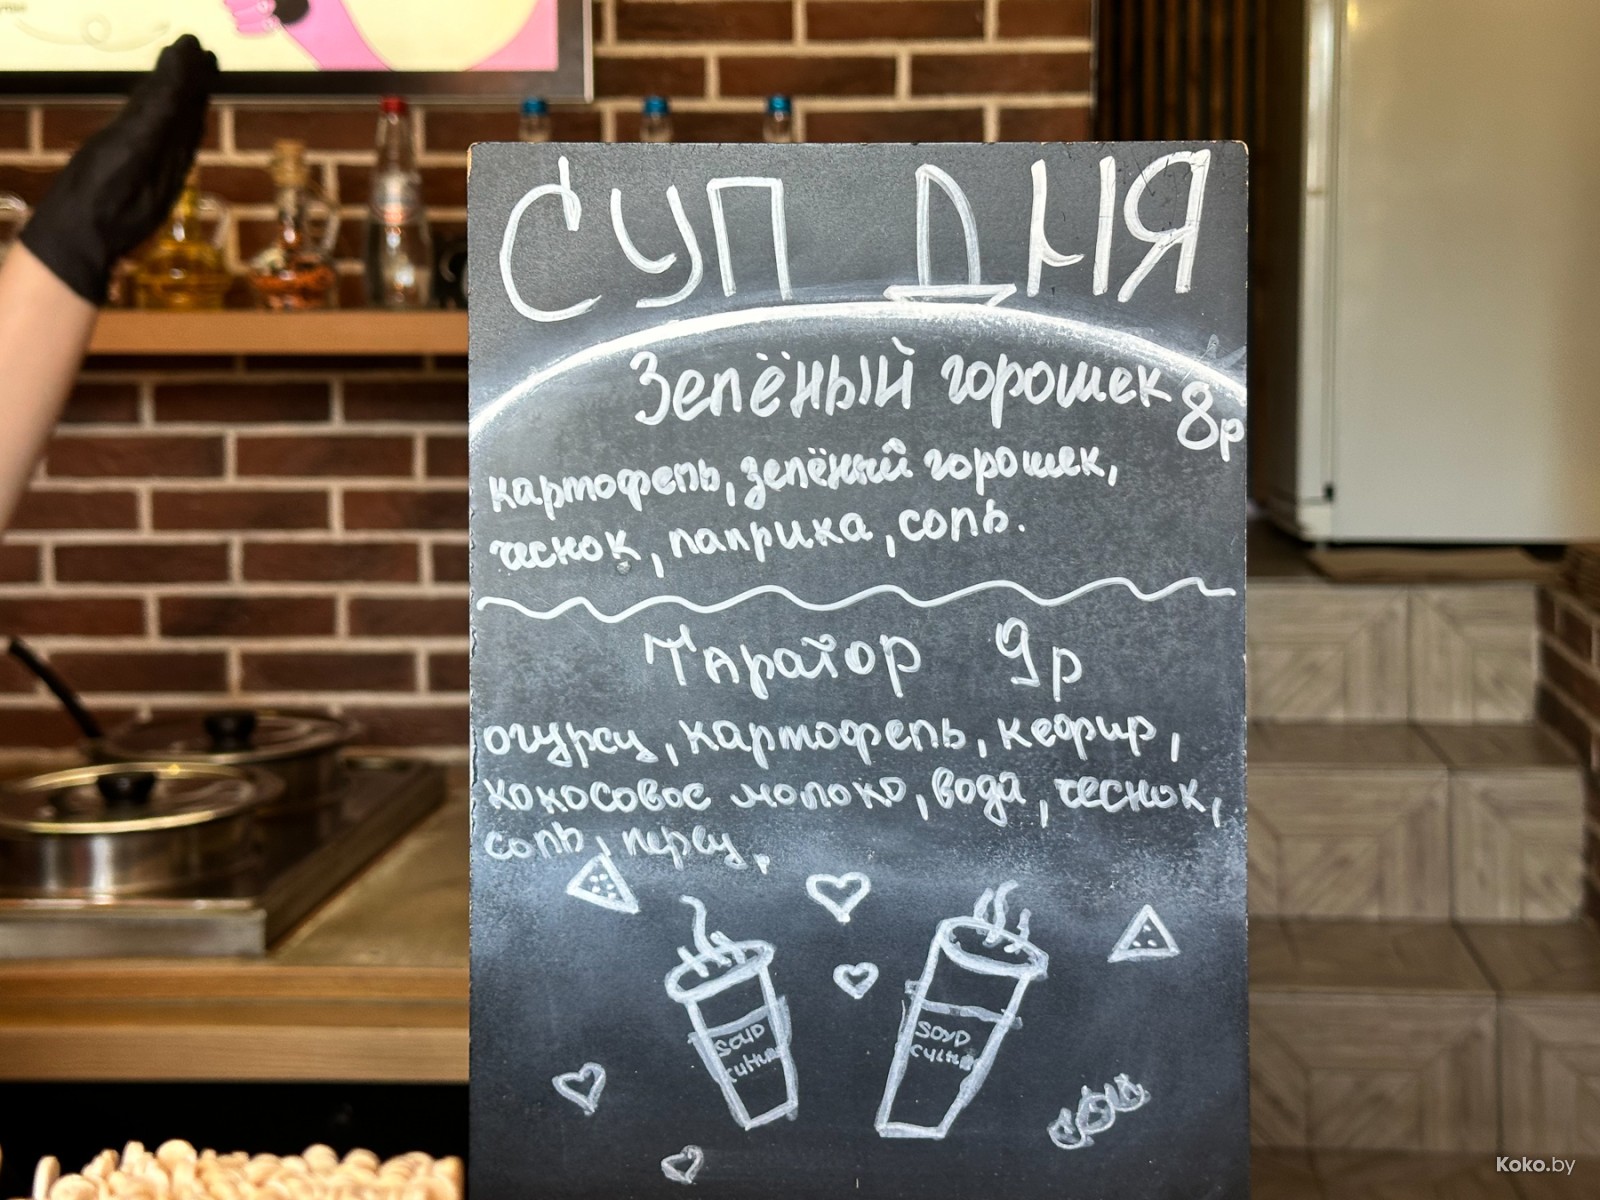 СУП ДНЯ
Зелёный горошек 8р
картофель, зелёный горошек,
чеснок, паприка, соль.
Таратор 9р
огурец, картофель, кефир,
кокосовое молоко, вода, чеснок,
соль, перец.
SOUP SOUP
CULTURE CULTURE
Koko.by